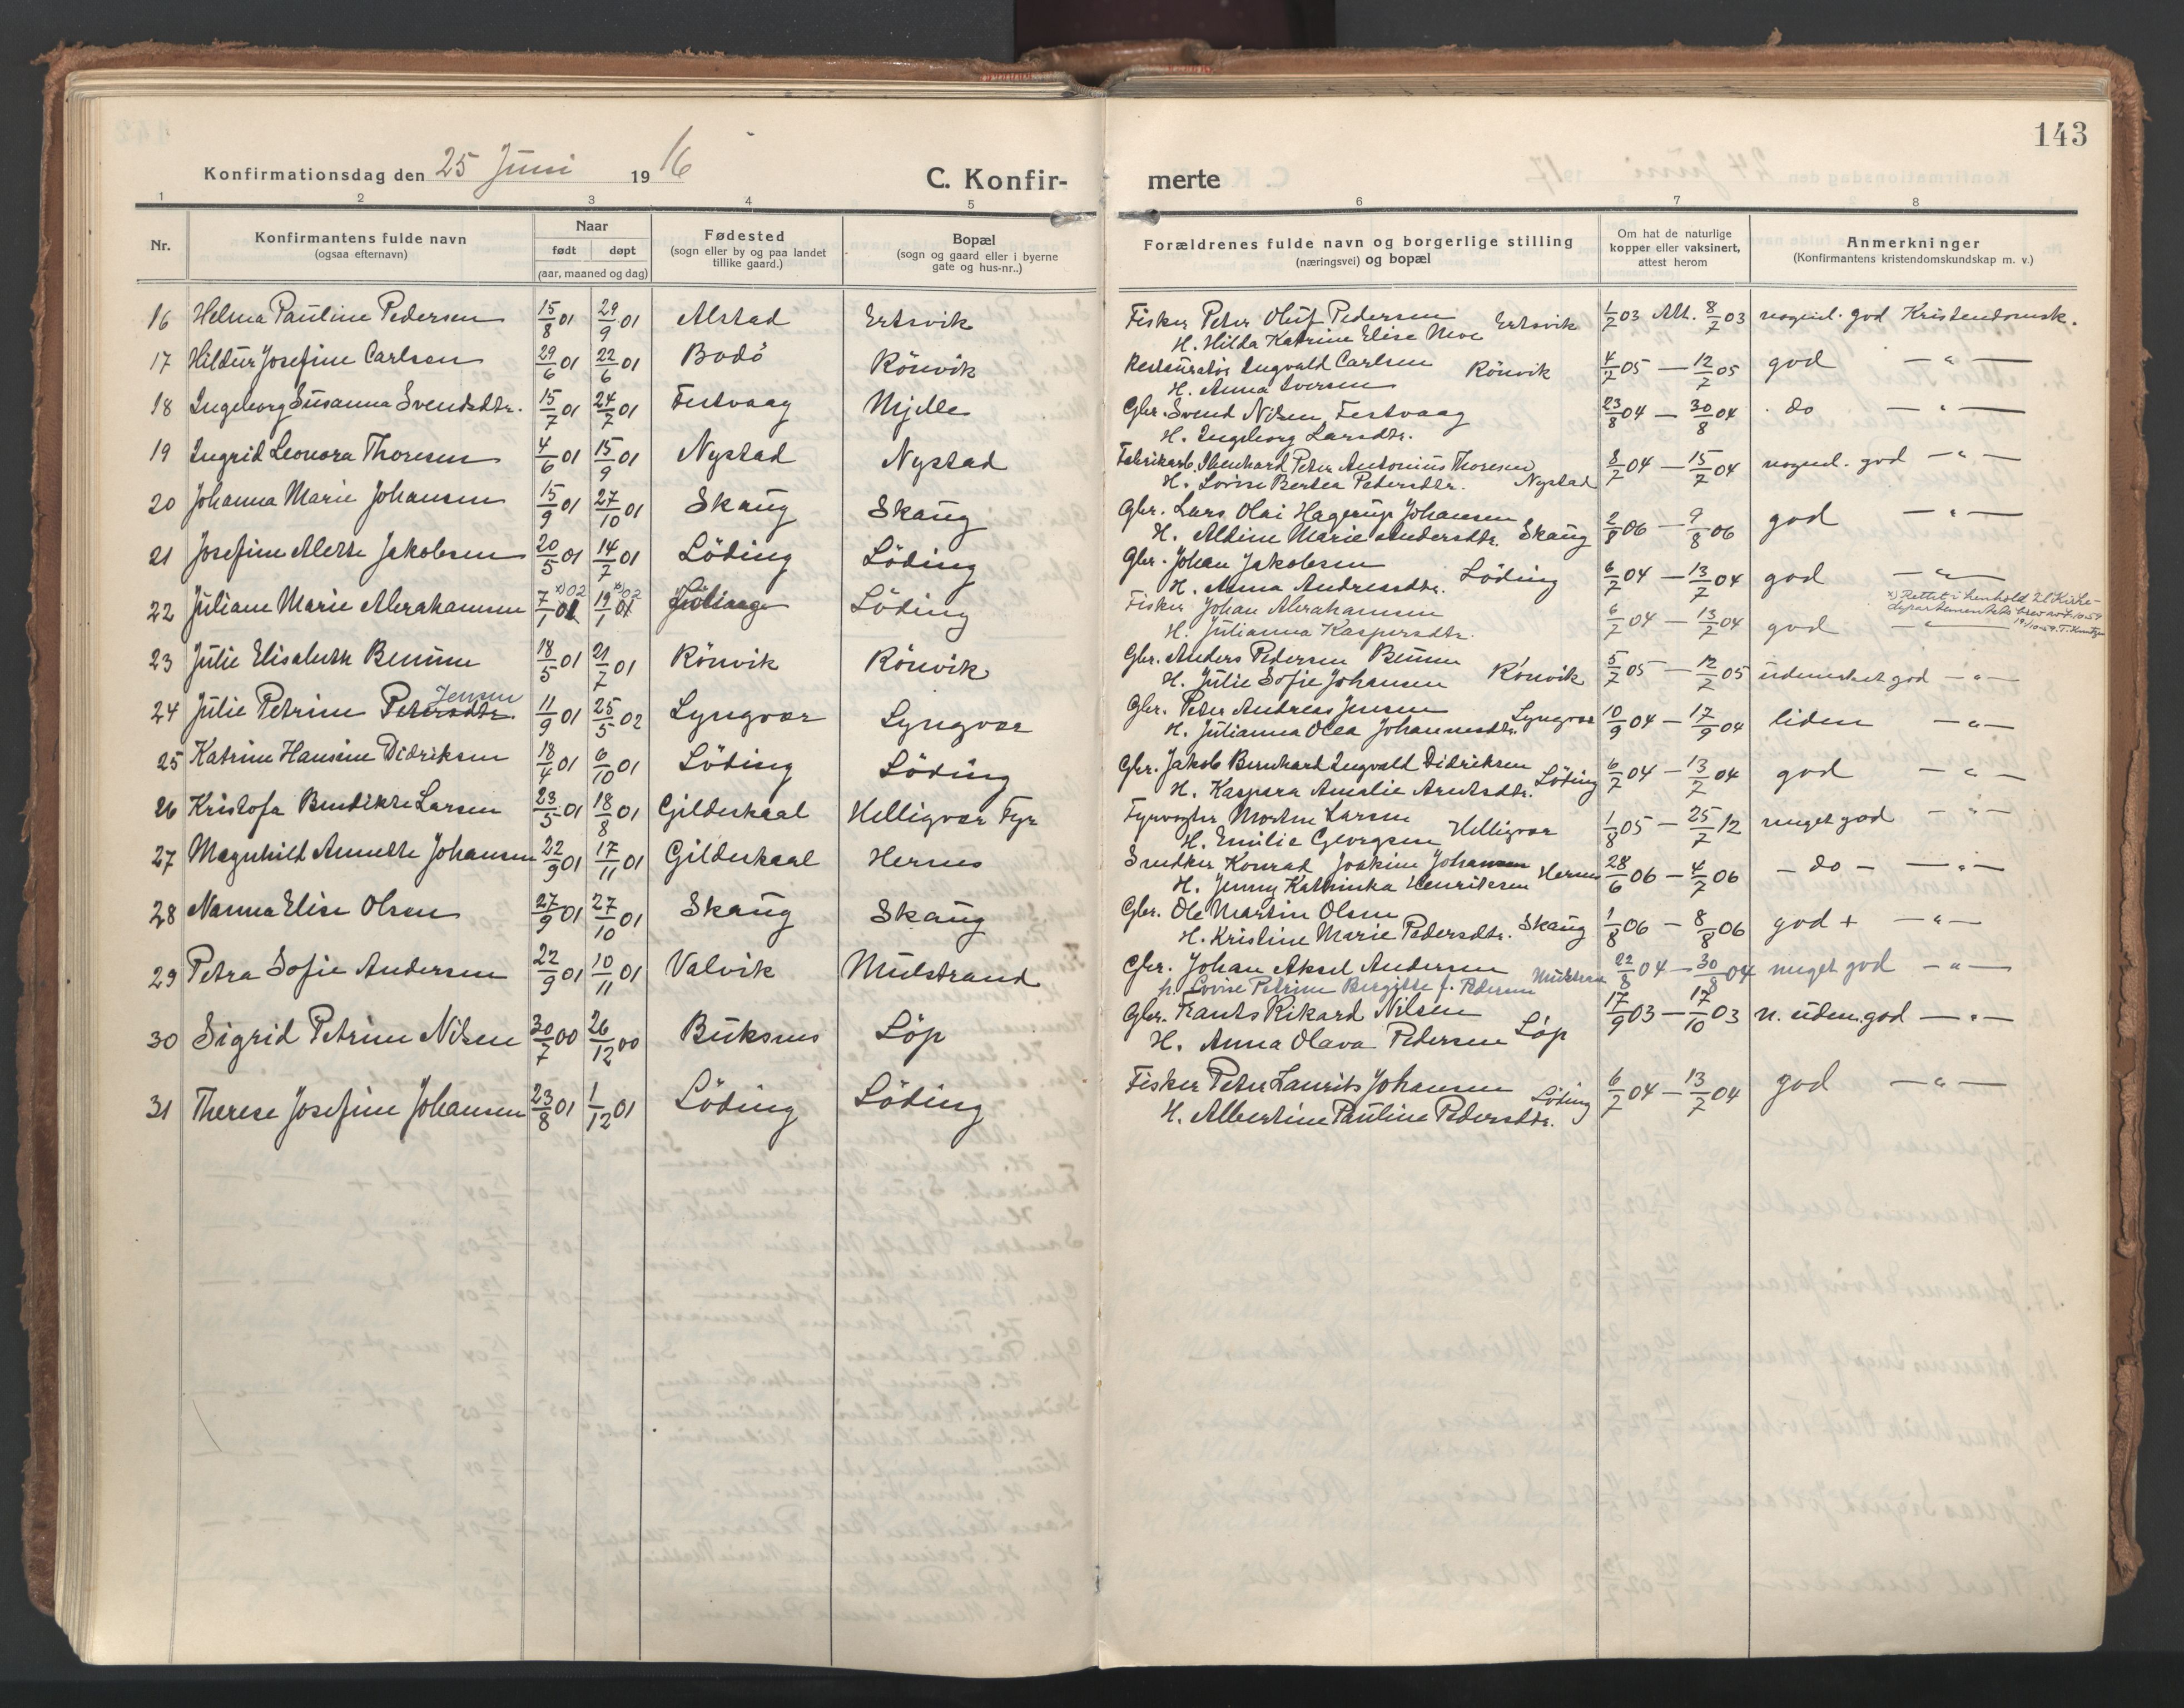 143
Konfirmationsdag den 25 Juni 1916
C. Konfir-
merte
1 2 3 4 5 6 7 8
Nr.
Konfirmantens fulde navn
(ogsaa efternavn)
Naar
født døpt
(aar, maaned og dag)
Fødested
(sogn eller by og paa landet
tillike gaard.)
Bopæl
(sogn og gaard eller i byerne
gate og hus-nr..)
Forældrenes fulde navn og borgerlige stilling
(næringsvei) og bopæl
Om hat de naturlige
kopper eller vaksinert,
attest herom
Anmerkninger
(Konfirmantens kristendomskundskap m. v.)
16 Helma Pauline Pedersen 15/8 01 29/9 01 Alstad Ertsvik
Fisker Peter Oluf Pedersen Ertsvik 1/7 03 Att. 8/7 03 nogenl. god Kristendomsk.
H. Hilda Katrine Elise Moe
17 Hildur Josefine Carlsen 29/6 01 22/6 01 Bodö Rönvik
Restauratör Ingvald Carlsen Rönvik 4/7 05 — 12/7 05 god — " —
H. Anna Iversen
18 Ingeborg Susanna Svendsdtr. 15/7 01 24/7 01 Festvaag Mjelle
Gbr. Svend Nilsen, Festvaag 23/8 04 — 30/8 04 . do — " —
H. Ingeborg Larsdtr.
19 Ingrid Leonora Thoresen 4/6 01 15/9 01 Nystad Nystad
Fabrikarb. Ibenhard Peter Antonius Thoresen 8/7 04 — 15/7 04 nogenl. god — " —
H. Lovise Bertea Pedersdtr. Nystad
20 Johanna Marie Johansen 15/9 01 27/10 01 Skaug Skaug
Gbr. Lars Olai Hagerup Johansen
H. Aldine Marie Andersdtr. Skaug 2/8 06 — 9/8 06 god — " —
21 Josefine Alette Jakobsen 20/5 01 14/7 01 Löding Löding
Gbr. Johan Jakobsen Löding 6/7 04 — 13/7 04 god — " —
H. Anna Andreasdtr.
22 Juliane Marie Abrahamsen 7/1 01 x)02 19/1 01 x)02 Löding Löding
Fisker Johan Abrahamsen 6/7 04 — 13/7 04 god — " —
H. Julianna Kaspersdtr.
x) Rettet i henhold til Kirke-
departementets brev av 7.10-59
19/10-59. T.
23 Julie Elisabeth Benum 18/5 01 21/7 01 Rönvik Rönvik
Gbr. Anders Pedersen Benum
H. Julie Sofie Johansen Rönvik 5/7 05 — 12/7 05 udmerket god — " —
24 Julie Petrine Petersdtr. Jensen 11/9 01 25/5 02 Lyngvær Lyngvær
Gbr. Peter Andreas Jensen
H. Julianna Olea Johannesdtr. Lyngvær 10/9 04 — 17/9 04 liden — " —
25 Katrine Hansine Didriksen 18/4 01 6/10 01 Löding Löding
Gbr. Jakob Bernhard Ingvald Didriksen
H. Kaspara Amalie Arntsdtr. Löding 6/7 04 — 13/7 04 god — " —
26 Kristofa Bendikte Larsen 23/5 01 18/8 01 Gildeskaal Helligvær Fyr
Fyrvogter Morten Larsen
H. Emilie Georgsen Helligvær 1/8 05 — 25/7 12 meget god — " —
27 Magnhild Annette Johansen 22/9 01 17/11 01 Gildeskaal Hernes
Snedker Konrad Joakim Johansen
H. Jenny Kathinka Henriksen Hernes 28/6 06 — 4/7 06 - do - — " —
28 Nanna Elise Olsen 27/9 01 27/10 01 Skaug Skaug
Gbr. Ole Martin Olsen
H. Kristine Marie Pedersdtr. Skaug 1/8 06 — 8/8 06 god + — " —
29 Petra Sofie Andersen 22/9 01 10/11 01 Valvik Mulstrand
Gbr. Johan Aksel Andersen Mulstrand 22/8 04 — 30/8 04 meget god — " —
h. Lovise Petrine Bergitte f. Pedersen
30 Sigrid Petrine Nilsen 30/7 00 26/12 00 Buksnes Löp
Gbr. Frants Rikard Nilsen 17/9 03 — 17/10 03 n. udm. god — " —
H. Anna Olava Pedersen Löp
31 Therese Josefine Johansen 23/8 01 1/12 01 Löding Löding
Fisker Peter Laurits Johansen Löding 6/7 04 — 13/7 04 god — " —
H. Albertine Pauline Pedersdtr.